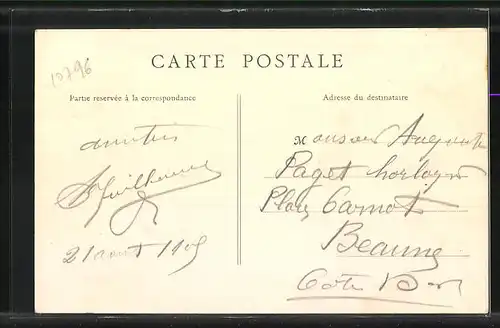 10796
CARTE POSTALE
Partie reservée à la correspondance
Adresse du destinataire
amitiés
Guillemin
21 aout 1905
Monsieur Auguste
Paget horloger
Place Carnot
Beaune
Côte D'or